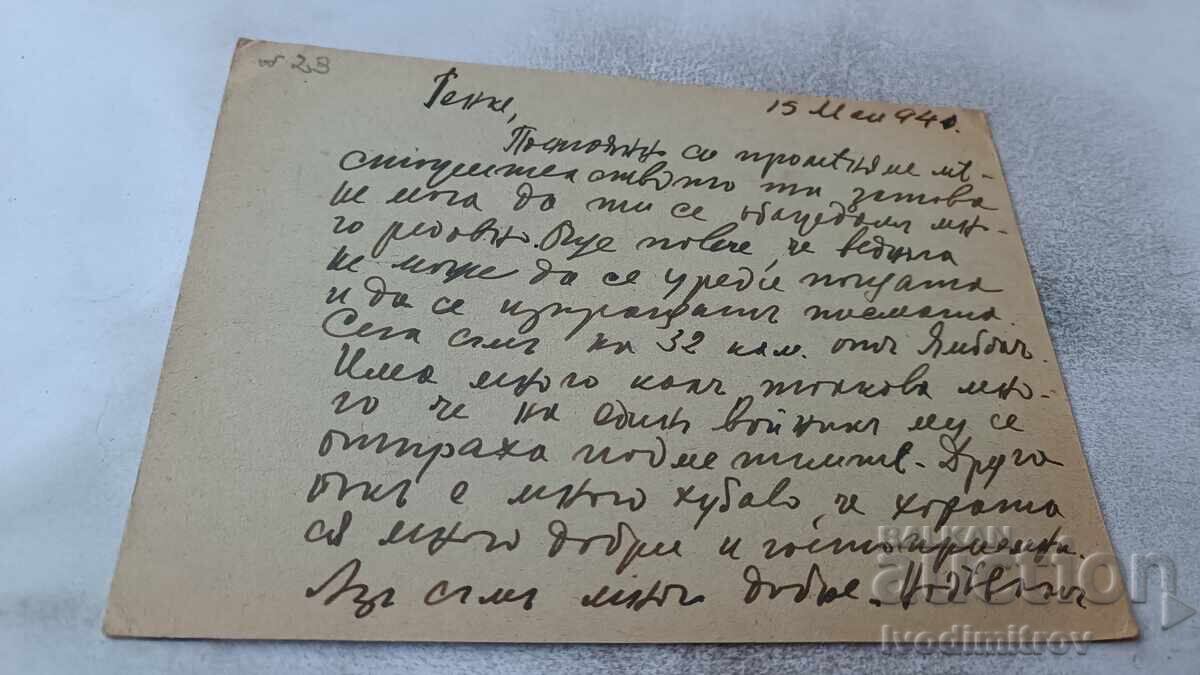 № 23
15 Май 94
Постоянно се променяме мѣ-
стожителството ти затова
не мога да ти се обаждамъ мно-
го редовно. Още повече, че веднага
не може да се уреди пощата
и да се изпращатъ писмата.
Сега съмъ на 32 клм. отъ Ямболъ.
Има много калъ толкова мно-
го че на единъ войникъ му се
отпраха подметките. Друго
пъкъ е много хубаво, че хората
сѫ много добри и гостоприемни.
Азъ съмъ много добре.
BALKAN auction
Ivodimitrov